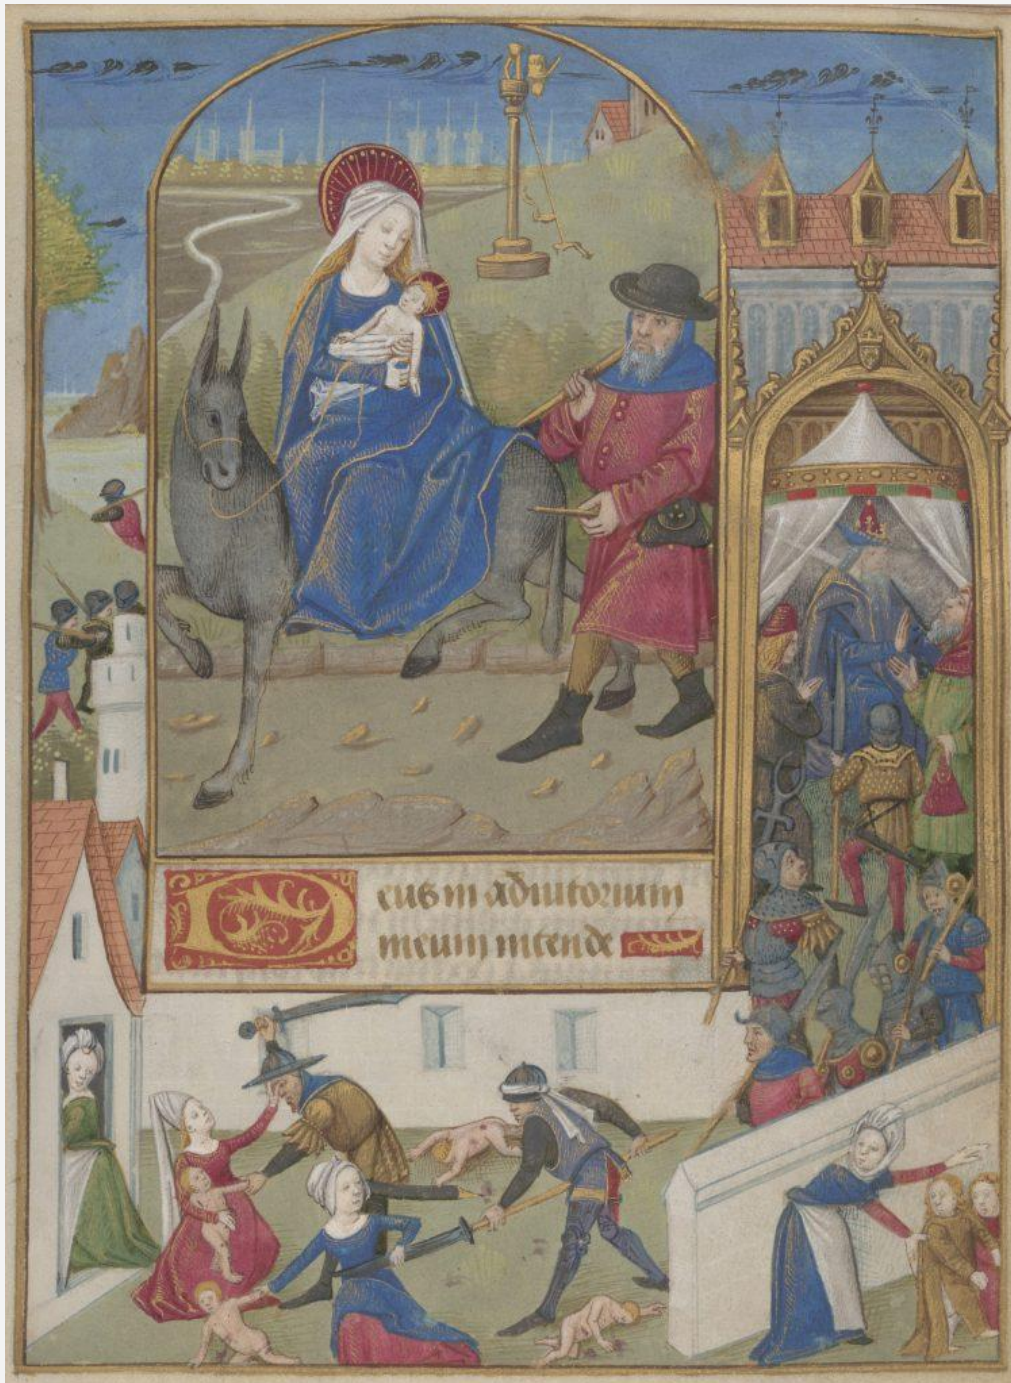 Deus in adiutorium
meum intende